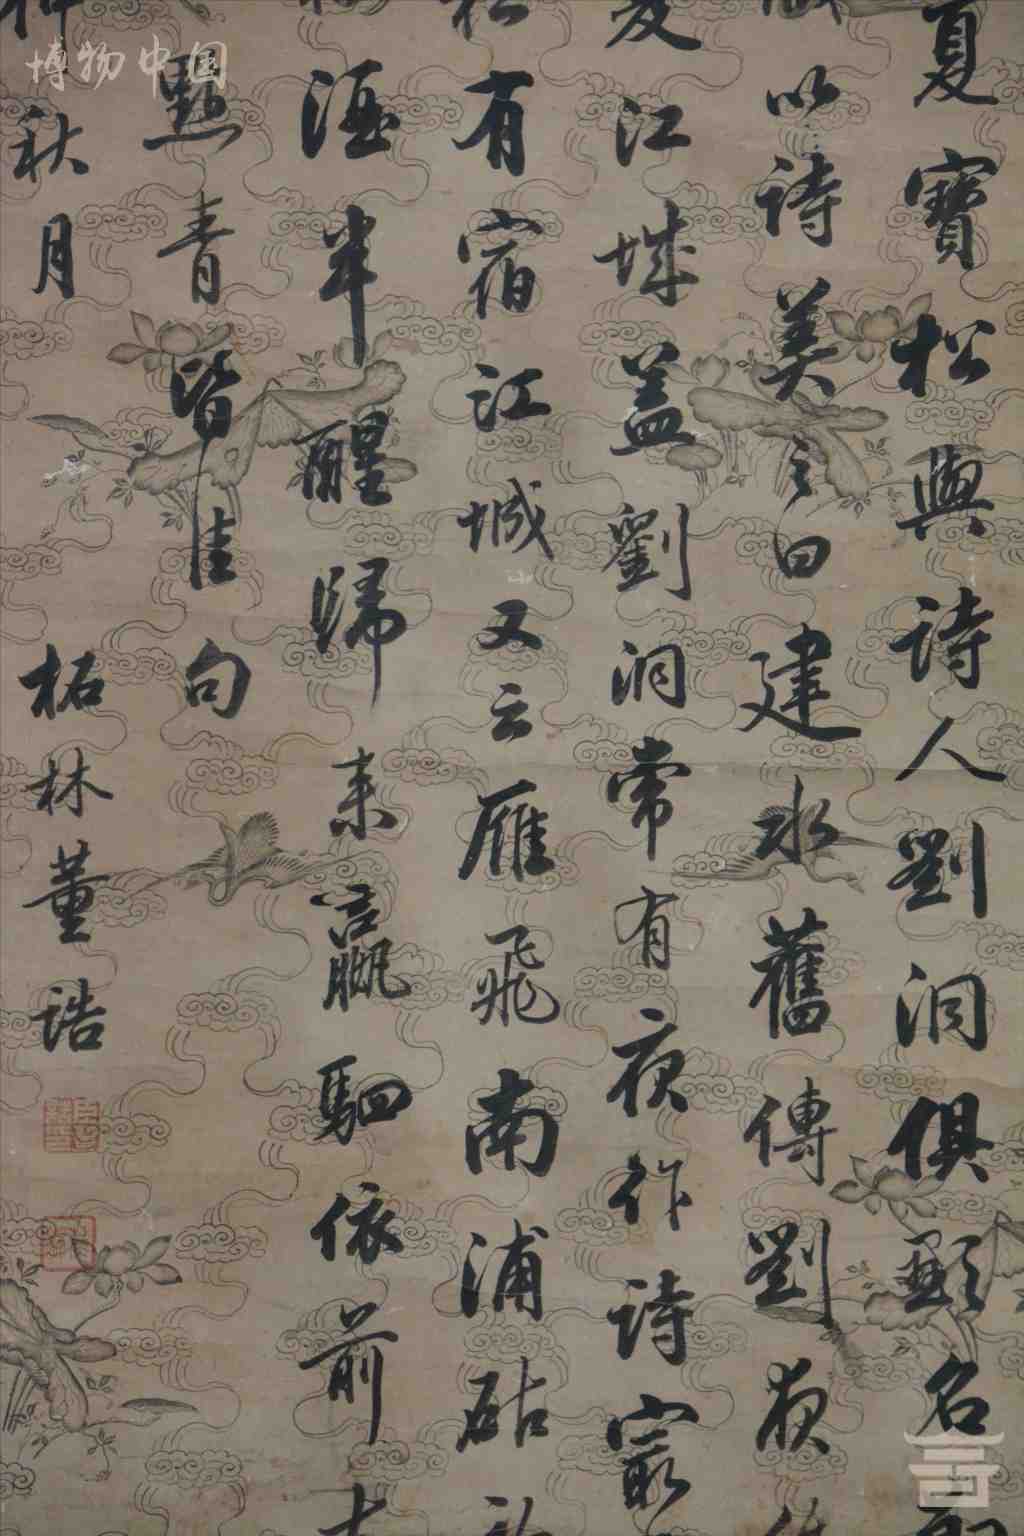 夏寶松與詩人劉洞俱顯名
以詩美之曰建水舊傳劉夜
夏江城蓋劉洞常有夜作詩寂
有宿江城又云雁飛南浦砧
酒半醒歸來羸駟依前
點青皆佳句
秋月 柘林董誥
博物中国